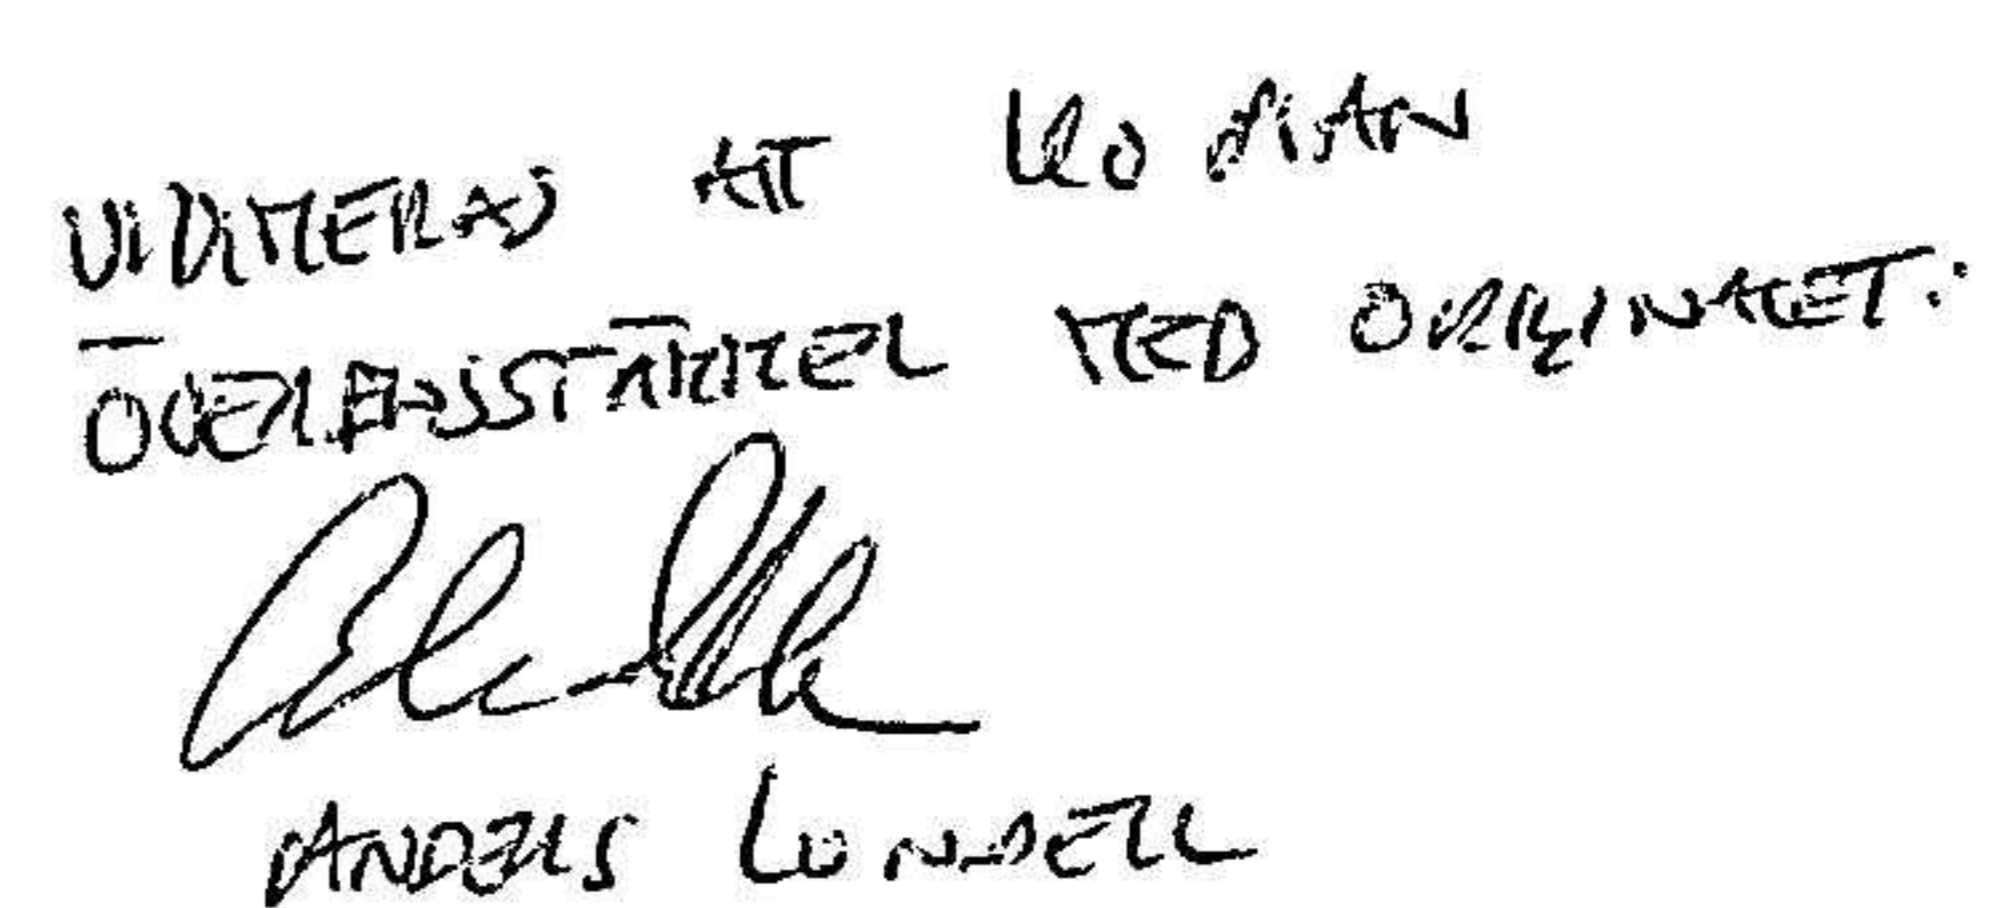 VIDIMERAS ATT KOPIAN
ÖVERENSSTÄMMER MED ORIGINALET:
ANDERS LUNDELL